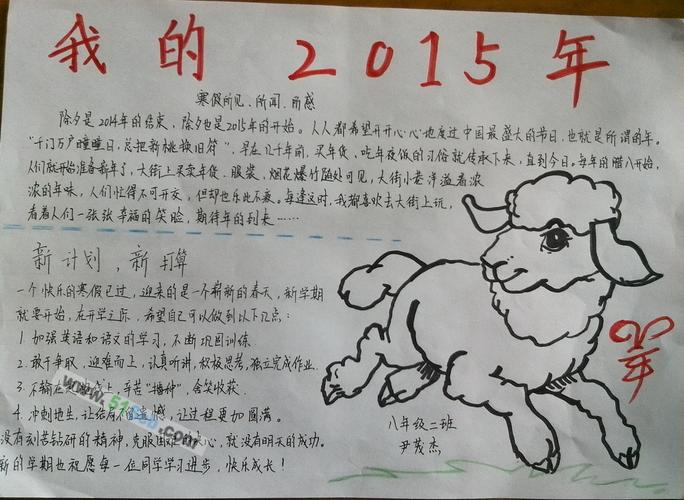 我的2015年
寒假所见、所闻、所感
除夕是2014年的结束，除夕也是2015年的开始。人人都希望开开心心地度过中国最盛大的节日，也就是所谓的年。
"千门万户曈曈日，总把新桃换旧符"，早在几千年前，买年货，吃年夜饭的习俗就传承下来，直到今日。每年的腊八开始，
人们就开始准备新年了，大街上买卖年货、服装、烟花爆竹随处可见，大街小巷洋溢着浓
浓的年味，人们忙得不可开交，但却也乐此不疲。每逢这时，我都喜欢去大街上玩，
看着人们一张张幸福的笑脸，期待年的到来……
新计划，新打算
一个快乐的寒假已过，迎来的是一个崭新的春天，新学期
就要开始，在开学之际，希望自己可以做到以下几点：
1. 加强英语和语文的学习，不断巩固训练.
2. 敢于争取，迎难而上，认真听讲，积极思考，独立完成作业.
3. 不输在起跑线上，辛苦"播种"，含笑收获.
4. 冲刺地生，让结局不留遗憾，让过程更加圆满。
没有刻苦钻研的精神，克服困难的决心，就没有明天的成功。
新的学期也祝愿每一位同学学习进步，快乐成长！
八年级二班
尹茂杰